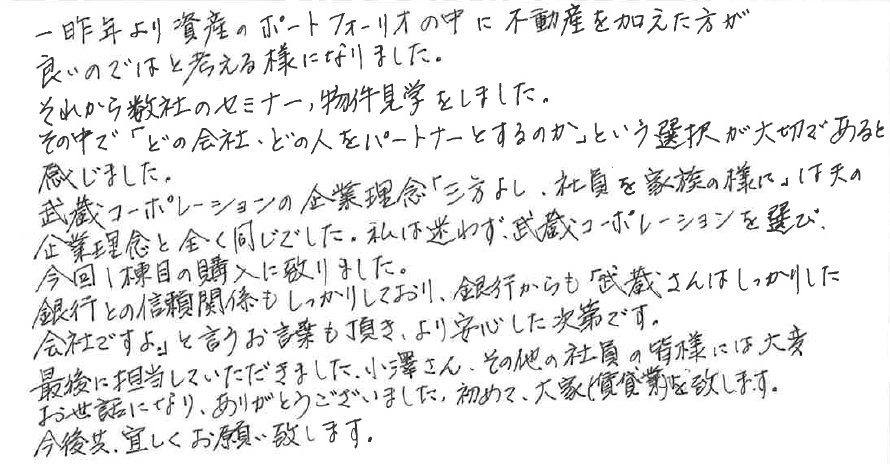 一昨年より資産のポートフォーリオの中に不動産を加えた方が
良いのではと考える様になりました。
それから数社のセミナー,物件見学をしました。
その中で「どの会社、どの人をパートナーとするのか」という選択が大切であると
感じました。
武蔵コーポレーションの企業理念「三方よし、社員を家族の様に」は夫の
企業理念と全く同じでした。私は迷わず、武蔵コーポレーションを選び、
今回1棟目の購入に致りました。
銀行との信頼関係もしっかりしており、銀行からも「武蔵さんはしっかりした
会社ですよ。」と言うお言葉も頂き、より安心した次第です。
最後に担当していただきました、小澤さん、その他の社員の皆様には大変
お世話になり、ありがとうございました。初めて、大家(賃貸業)を致します。
今後共、宜しくお願い致します。